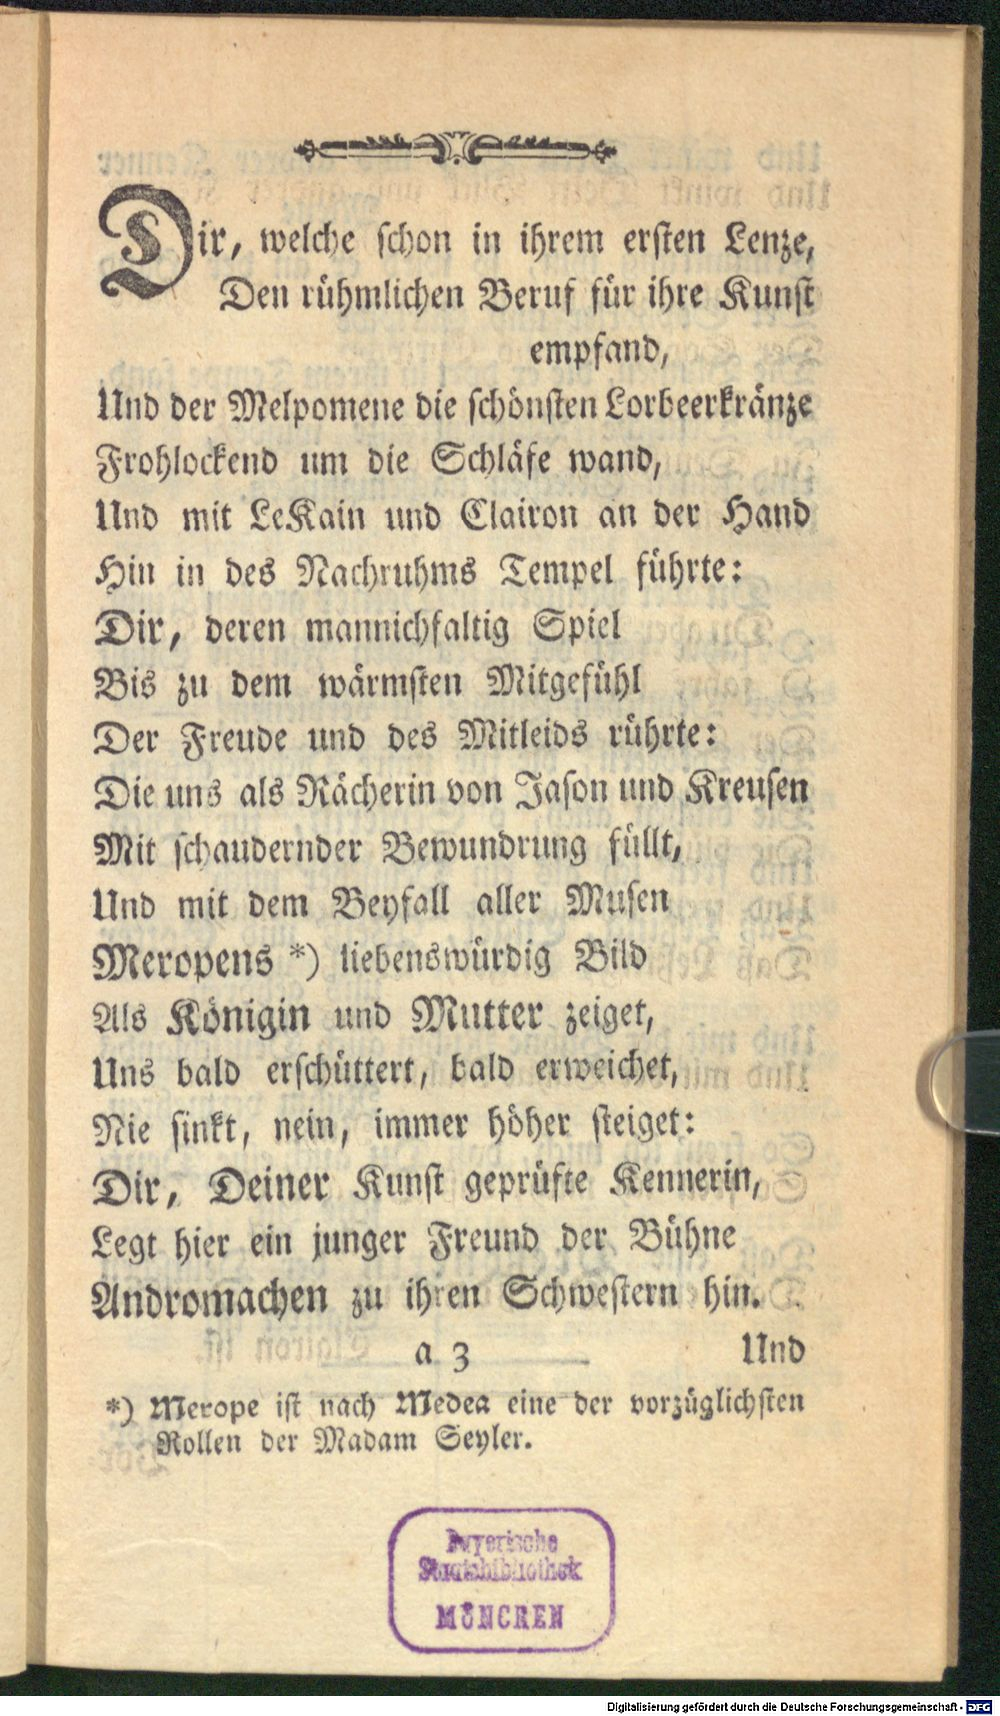 Dir, welche schon in ihrem ersten Lenze,
Den rühmlichen Beruf für ihre Kunst
empfand,
Und der Melpomene die schönsten Lorbeerkränze
Frohlockend um die Schläfe wand,
Und mit LeKain und Clairon an der Hand
Hin in des Nachruhms Tempel führte:
Dir, deren mannichfaltig Spiel
Bis zu dem wärmsten Mitgefühl
Der Freude und des Mitleids rührte:
Die uns als Rächerin von Jason und Kreusen
Mit schaudernder Bewundrung füllt,
Und mit dem Beyfall aller Musen
Meropens *) liebenswürdig Bild
Als Königin und Mutter zeiget,
Uns bald erschüttert, bald erweichet,
Nie sinkt, nein, immer höher steiget:
Dir, Deiner Kunst geprüfte Kennerin,
Legt hier ein junger Freund der Bühne
Andromachen zu ihren Schwestern hin.
a 3 Und
*) Merope ist nach Medea eine der vorzüglichsten
Rollen der Madam Seyler.
Bayerische
Staatsbibliothek
MÜNCHEN
Digitalisierung gefördert durch die Deutsche Forschungsgemeinschaft - DFG